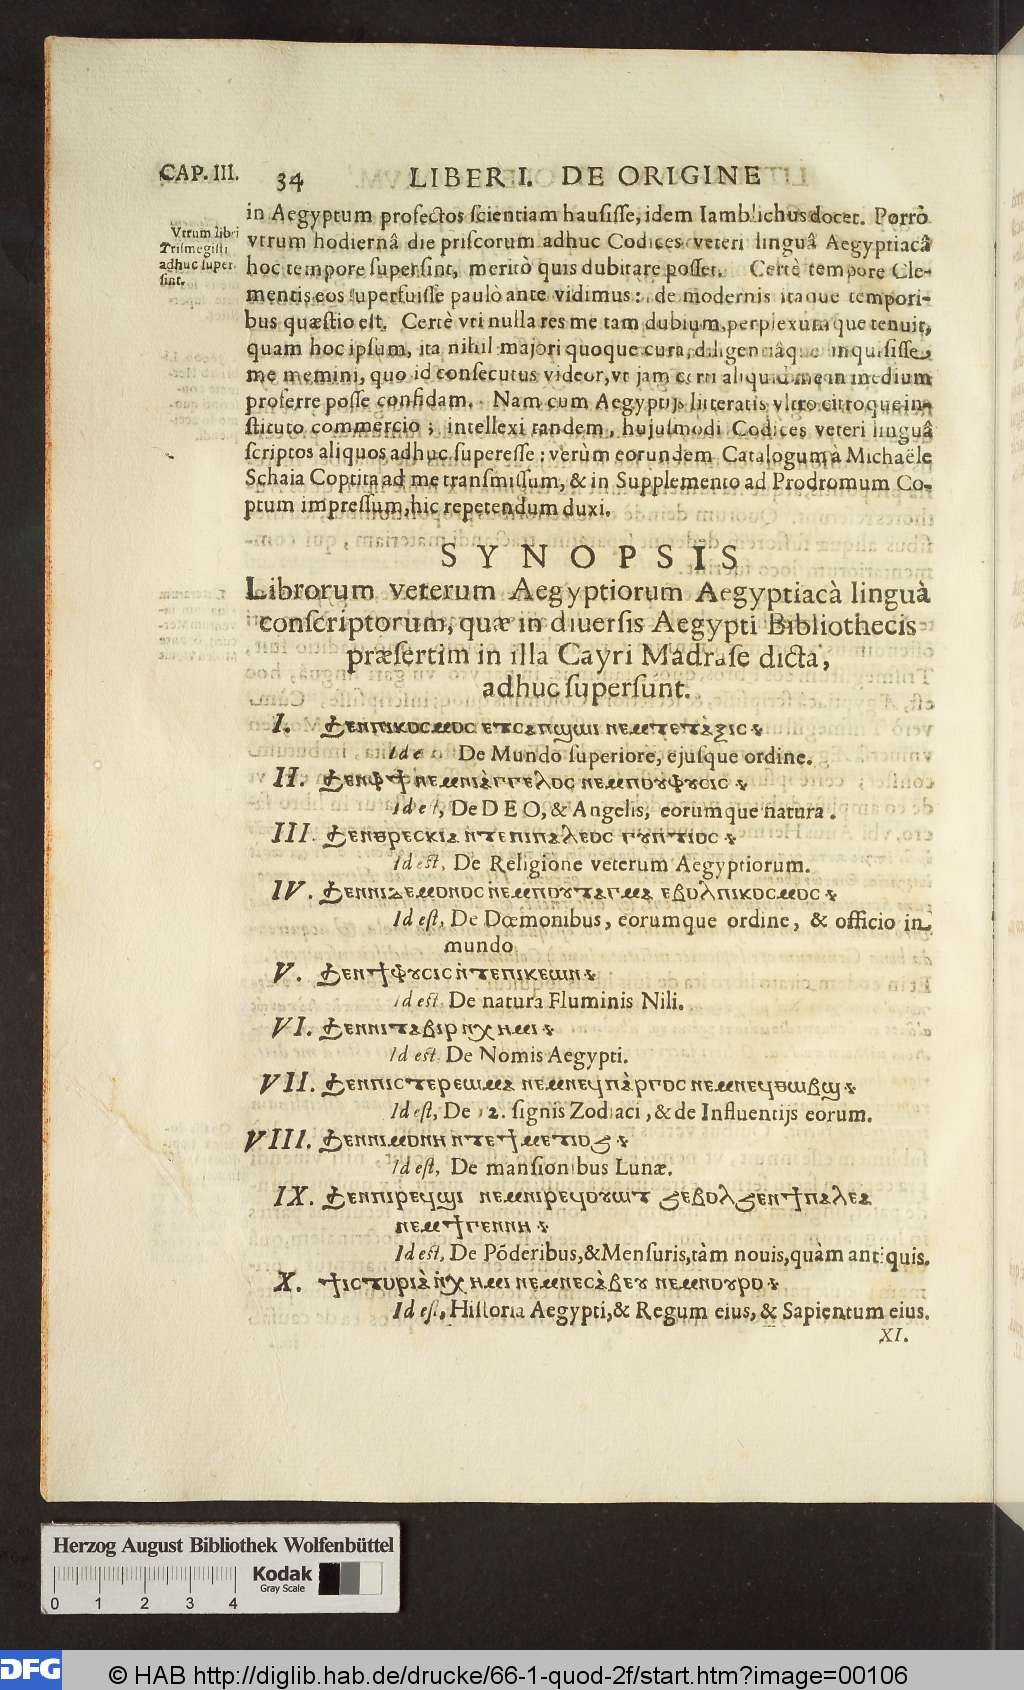 CAP. III. 34 LIBER I. DE ORIGINE
Vtrum libri
Trismegisti
adhuc super
sint.
in Aegyptum profectos scientiam hausisse, idem Iamblichus docet. Porrò
vtrum hodiernâ die priscorum adhuc Codices veteri linguâ Aegyptiacâ
hoc tempore supersint, meritò quis dubitare posset. Certè tempore Cle-
mentis eos superfuisse paulò ante vidimus: de modernis itaque tempori-
bus quæstio est. Certè vti nulla res me tam dubium, perplexumque tenuit,
quam hoc ipsum, ita nihil majori quoque cura, diligentiâque inquisisse
me memini, quo id consecutus videor, vt jam certi aliquid me in medium
proferre posse confidam. Nam cum Aegyptijs litteratis vltro citroque in-
stituto commercio; intellexi tandem, hujusmodi Codices veteri linguâ
scriptos aliquos adhuc superesse: verùm eorundem Catalogum à Michaële
Schaia Coptita ad me transmissum, & in Supplemento ad Prodromum Co-
ptum impressum, hic repetendum duxi.
SYNOPSIS
Librorum veterum Aegyptiorum Aegyptiacà linguà
conscriptorum, quæ in diuersis Aegypti Bibliothecis
præsertim in illa Cayri Madrase dicta,
adhuc supersunt.
I. Ϧⲉⲛⲡⲓⲕⲟⲥⲙⲟⲥ ⲉⲧⲥⲁⲡϣⲱⲓ ⲛⲉⲙⲧⲉϥⲧⲁⲝⲓⲥ
Id est De Mundo superiore, ejusque ordine.
II. Ϧⲉⲛⲫϯ ⲛⲉⲙⲛⲓⲁ̀ⲅⲅⲉⲗⲟⲥ ⲛⲉⲙⲡⲟⲩⲫⲩⲥⲓⲥ
Id est, De DEO, & Angelis, eorumque natura.
III. Ϧⲉⲛⲑⲣⲉⲥⲕⲓⲁ ⲛ̀ⲧⲉⲛⲓⲡⲁⲗⲉⲟⲥ ⲅⲩⲡⲧⲓⲟⲥ
Id est, De Religione veterum Aegyptiorum.
IV. Ϧⲉⲛⲛⲓⲇⲉⲙⲟⲛⲟⲥ ⲛⲉⲙⲡⲟⲩⲧⲁⲅⲙⲁ ⲉⲃⲟⲗⲡⲓⲕⲟⲥⲙⲟⲥ
Id est, De Dœmonibus, eorumque ordine, & officio in
mundo
V. Ϧⲉⲛϯⲫⲩⲥⲓⲥ ⲛ̀ⲧⲉⲡⲓⲕⲉⲱⲛ
Id est. De natura Fluminis Nili.
VI. Ϧⲉⲛⲛⲓⲧⲁⲃⲓⲣ ⲛ̀ⲭⲏⲙⲓ
Id est. De Nomis Aegypti.
VII. Ϧⲉⲛⲡⲓⲥⲧⲉⲣⲉⲱⲙⲁ ⲛⲉⲙⲛⲉϥⲡⲁ̀ⲣⲅⲟⲥ ⲛⲉⲙⲛⲉϥⲑⲱⲃϣ
Id est, De 12. signis Zodiaci, & de Influentijs eorum.
VIII. Ϧⲉⲛⲛⲓⲙⲟⲛⲏ ⲛ̀ⲧⲉϯⲙⲉⲧⲓⲟϩ
Id est, De mansionibus Lunæ.
IX. Ϧⲉⲛⲡⲓⲣⲉϥϣⲓ ⲛⲉⲙⲛⲓⲣⲉϥⲟⲩⲱⲧ ϩⲉⲃⲟⲗϩⲉⲛϯⲡⲁⲗⲉⲁ
ⲛⲉⲙϯⲅⲉⲛⲛⲏ
Id est, De Põderibus, & Mensuris, tàm nouis, quàm antiquis.
X. ϯⲓⲥⲧⲩⲣⲓⲁ̀ ⲛ̀ⲭⲏⲙⲓ ⲛⲉⲙⲛⲉⲥⲁ̀ⲃⲉⲩ ⲛⲉⲙⲛⲟⲩⲣⲟ
Id est, Historia Aegypti, & Regum eius, & Sapientum eius.
XI.
Herzog August Bibliothek Wolfenbüttel
Kodak
Gray Scale
0 1 2 3 4
DFG © HAB http://diglib.hab.de/drucke/66-1-quod-2f/start.htm?image=00106